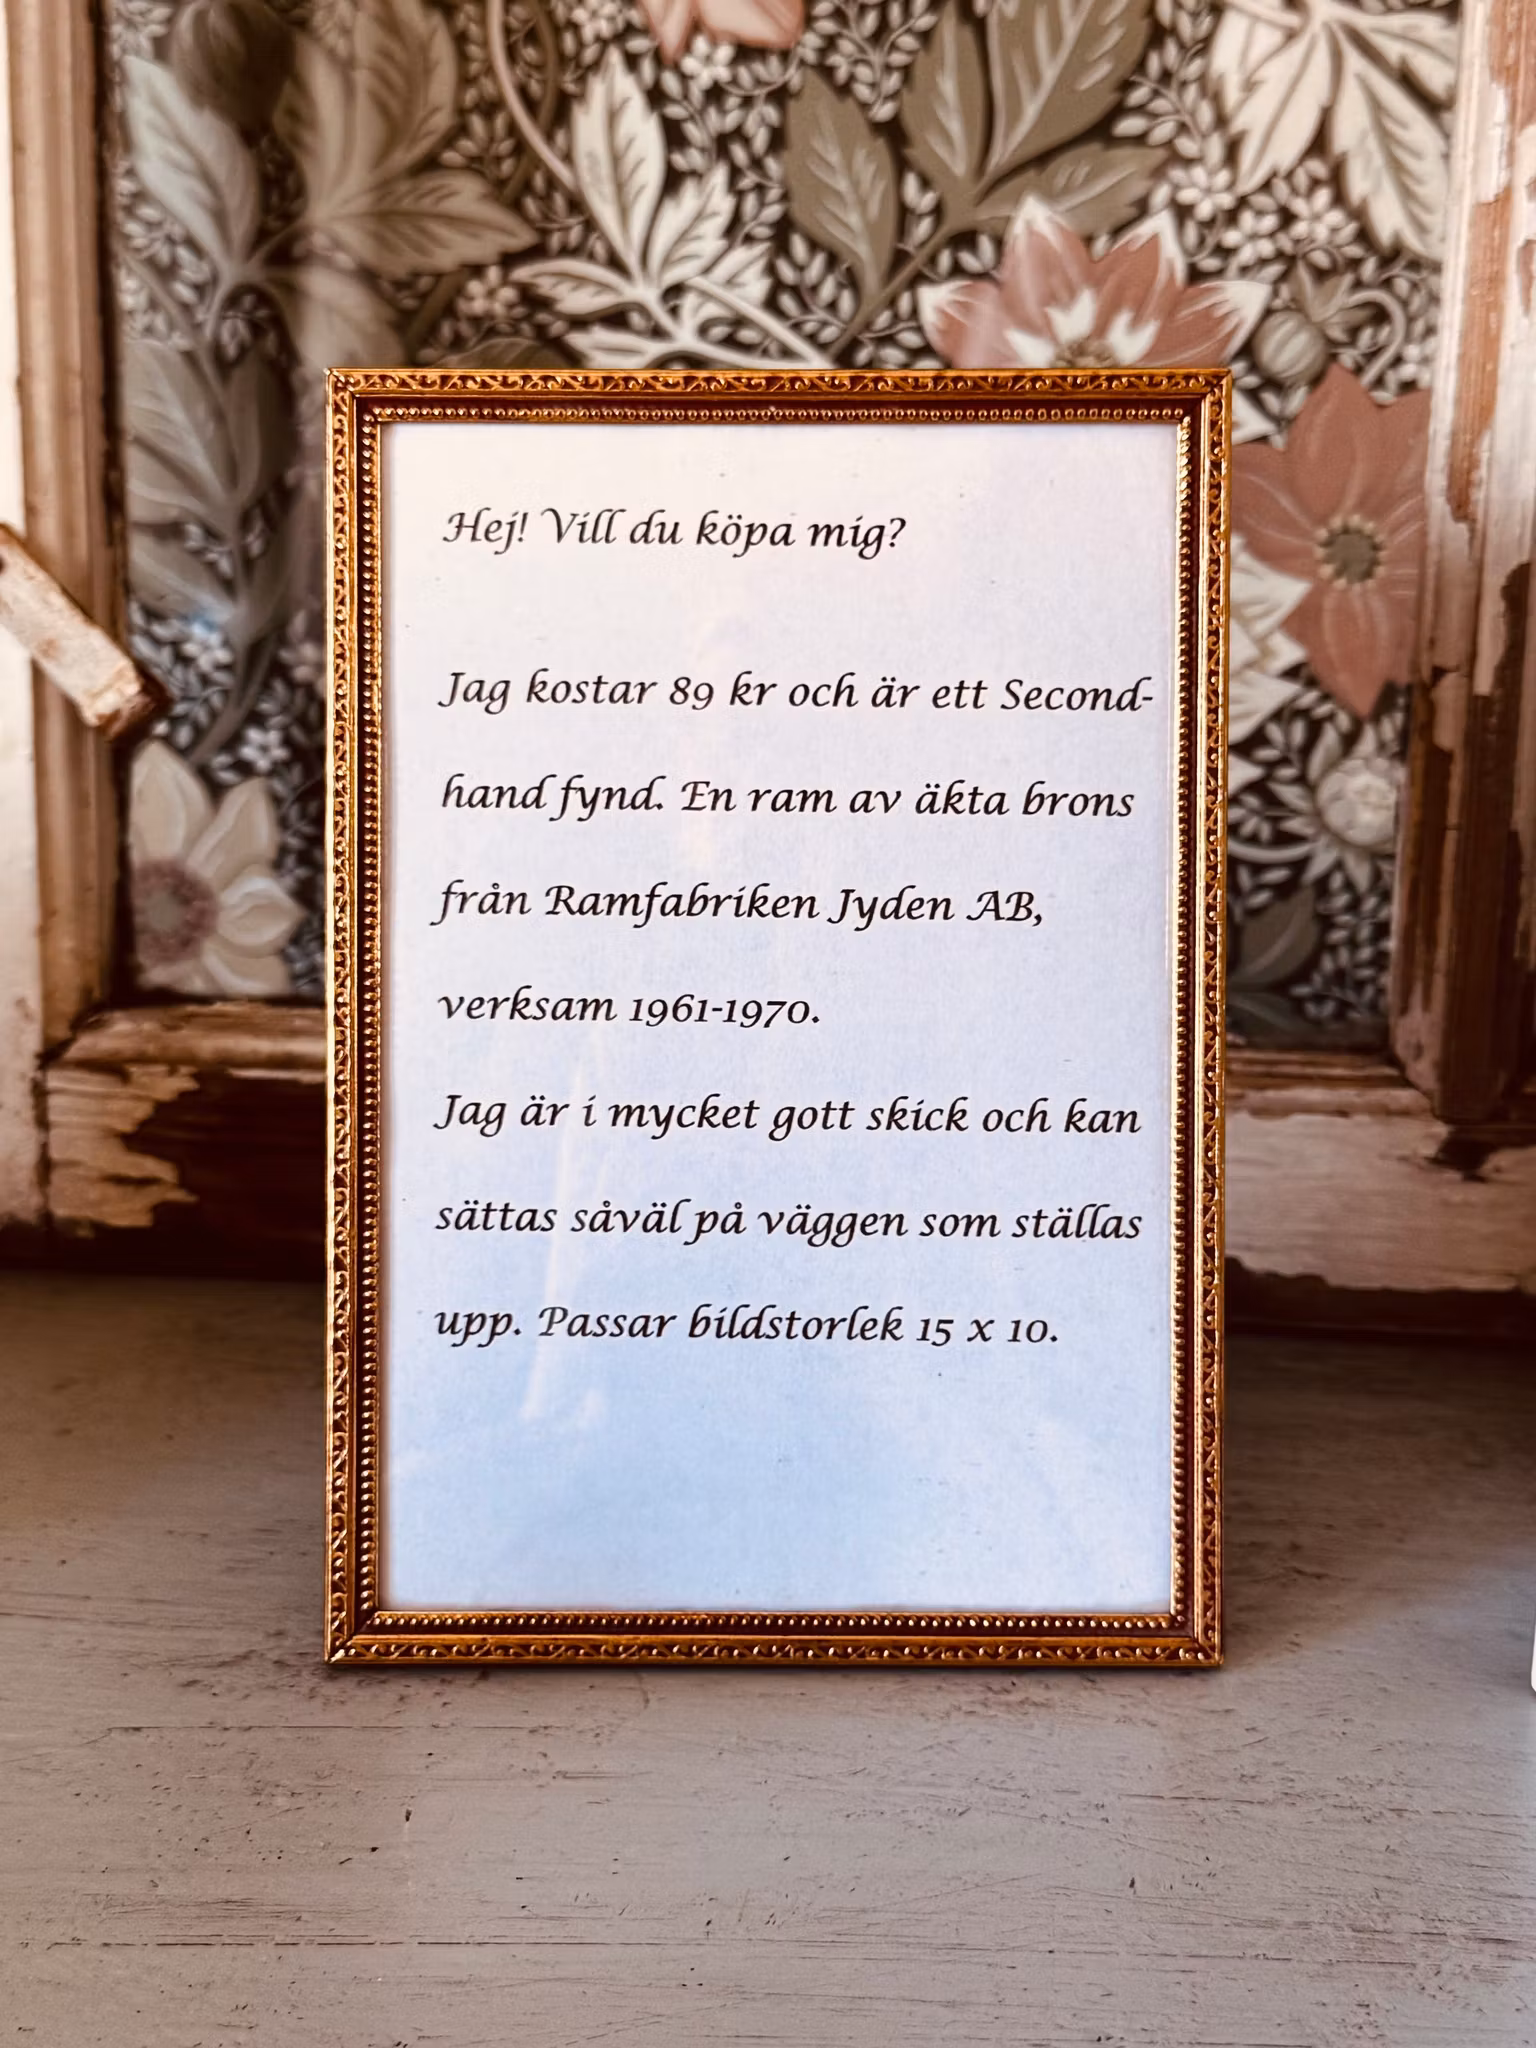 Hej! Vill du köpa mig?
Jag kostar 89 kr och är ett Second-
hand fynd. En ram av äkta brons
från Ramfabriken Jyden AB,
verksam 1961-1970.
Jag är i mycket gott skick och kan
sättas såväl på väggen som ställas
upp. Passar bildstorlek 15 x 10.